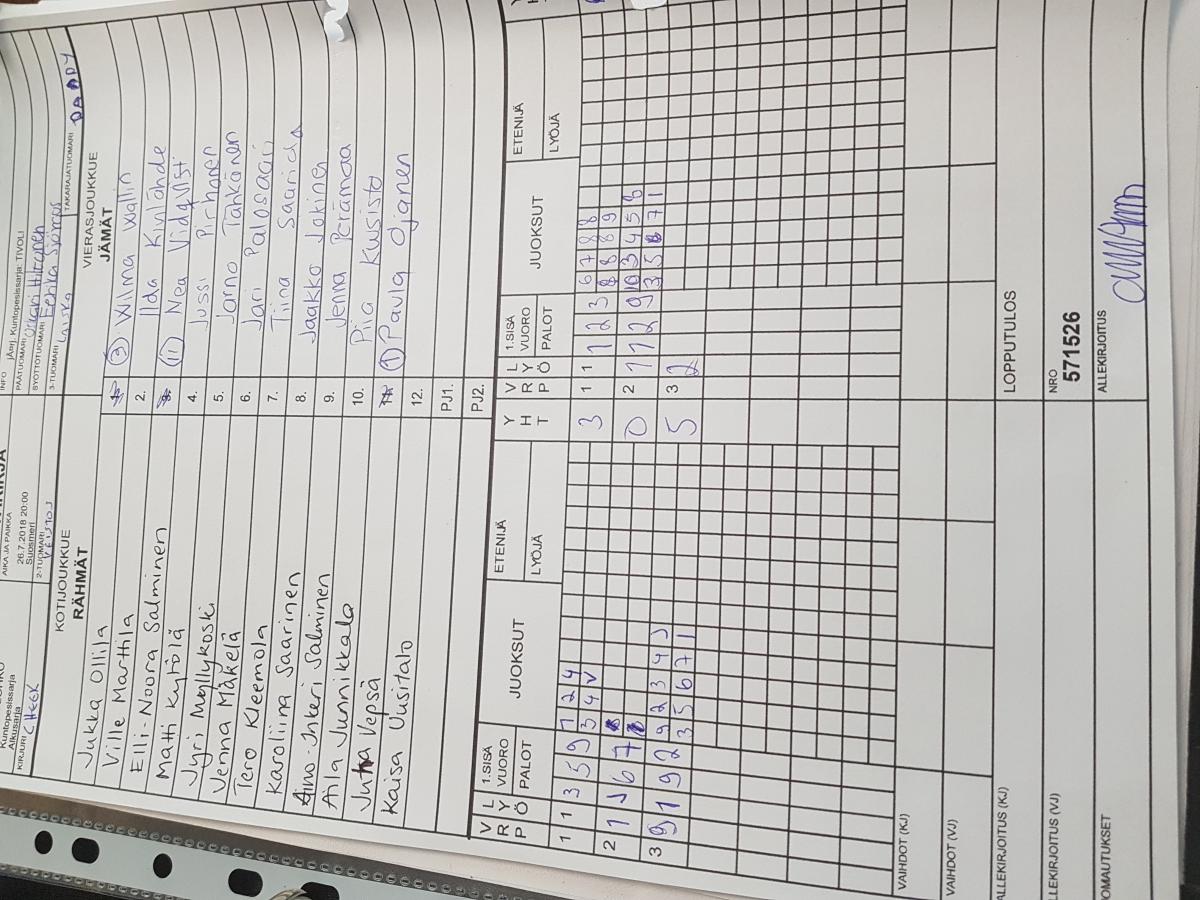 AIKA JA PAIKKA
26.7.2018 20:00
Suosmeri
INFO
PÄÄTUOMARI
Kuntopesissarja: TIVOLI
Alkusarja
Kuntopesissarja
KIRJURI CHECK
2-TUOMARI
SYÖTTÖTUOMARI
3-TUOMARI Laiska
TAKARAJATUOMARI DADDY
KOTIJOUKKUE
RÄHMÄT
VIERASJOUKKUE
JÄMÄT
Jukka Ollila
3 Wilma Wallin
Ville Marttila
2. Iida Kivilähde
Elli-Noora Salminen
11 Noa Vidqvist
Matti Kytölä
4. Jussi Pirhonen
Jyri Myllykoski
5. Jarno Tähkänen
Venna Mäkelä
6. Jari Palosaari
Tero Kleemola
7. Tiina
Karoliina Saarinen
8. Jaakko Jokinen
Aino-Inkeri Salminen
9. Jenna Perämaa
Aila Junnikkala
10. Piia Kusisto
Vepsä
1 Paula Ojanen
Kaisa Uusitalo
12.
PJ1.
PJ2.
V R P L Y Ö
1.SISÄ VUORO
PALOT
JUOKSUT
ETENIJÄ
LYÖJÄ
Y H T
V R P L Y Ö
1.SISÄ VUORO
PALOT
JUOKSUT
ETENIJÄ
LYÖJÄ
1 1 3 5 9 1 2 4
3 4 V
3
1 1 1 2 3 6 7 8 8
8 8 8 9
2 1
6 7
0
2 1 1 2 9 10 3 4 5 8
3 9 1 9 2 9 2 3 4
3 5 6 7 1
5
3 2
3 5 6 7 1
VAIHDOT (KJ)
VAIHDOT (VJ)
ALLEKIRJOITUS (KJ)
LOPPUTULOS
ALLEKIRJOITUS (VJ)
NRO
571526
HUOMAUTUKSET
ALLEKIRJOITUS